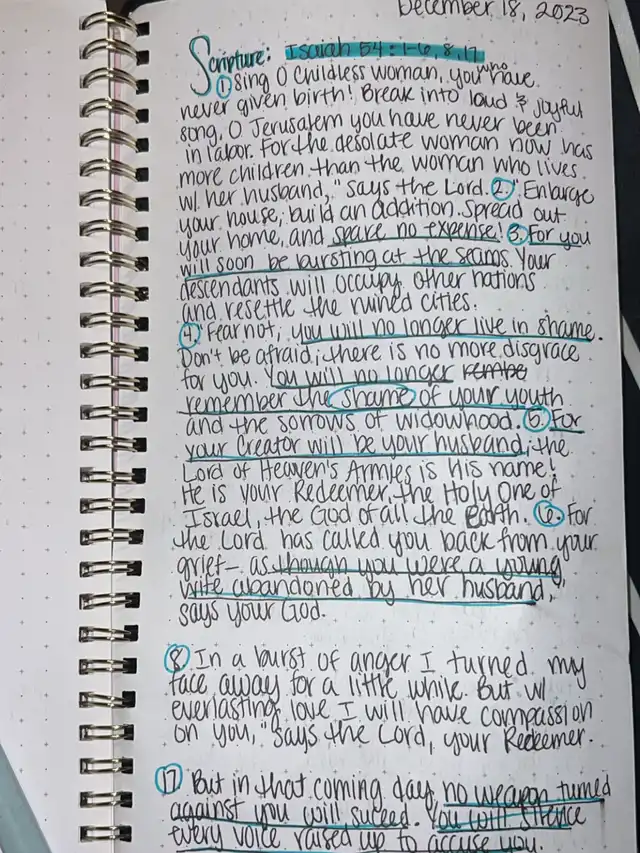 December 18, 2023
Scripture: Isaiah 54:1-6, 8, 17
① Sing O childless woman, you who have
never given birth! Break into loud & joyful
song, O Jerusalem you have never been
in labor. For the desolate woman now has
more children than the woman who lives
w/ her husband," Says the Lord. ② "Enlarge
your house; build an addition. Spread out
your home, and spare no expense! ③ For you
will soon be bursting at the seams. Your
descendants will occupy other nations
and resettle the ruined cities.
④ "Fear not; you will no longer live in shame.
Don't be afraid; there is no more disgrace
for you. You will no longer rembe
remember the shame of your youth
and the sorrows of widowhood. ⑤ For
your Creator will be your husband; the
Lord of Heaven's Armies is His name!
He is your Redeemer, the Holy One of
Israel, the God of all the Earth. ⑥ For
the Lord has called you back from your
grief— as though you were a young
wife abandoned by her husband,
says your God.
⑧ In a burst of anger I turned my
face away for a little while. But w/
everlasting love I will have compassion
on you, "says the Lord, your Redeemer.
⑰ But in that coming day, no weapon turned
against you will suceed. You will silence
every voice raised up to accuse you.